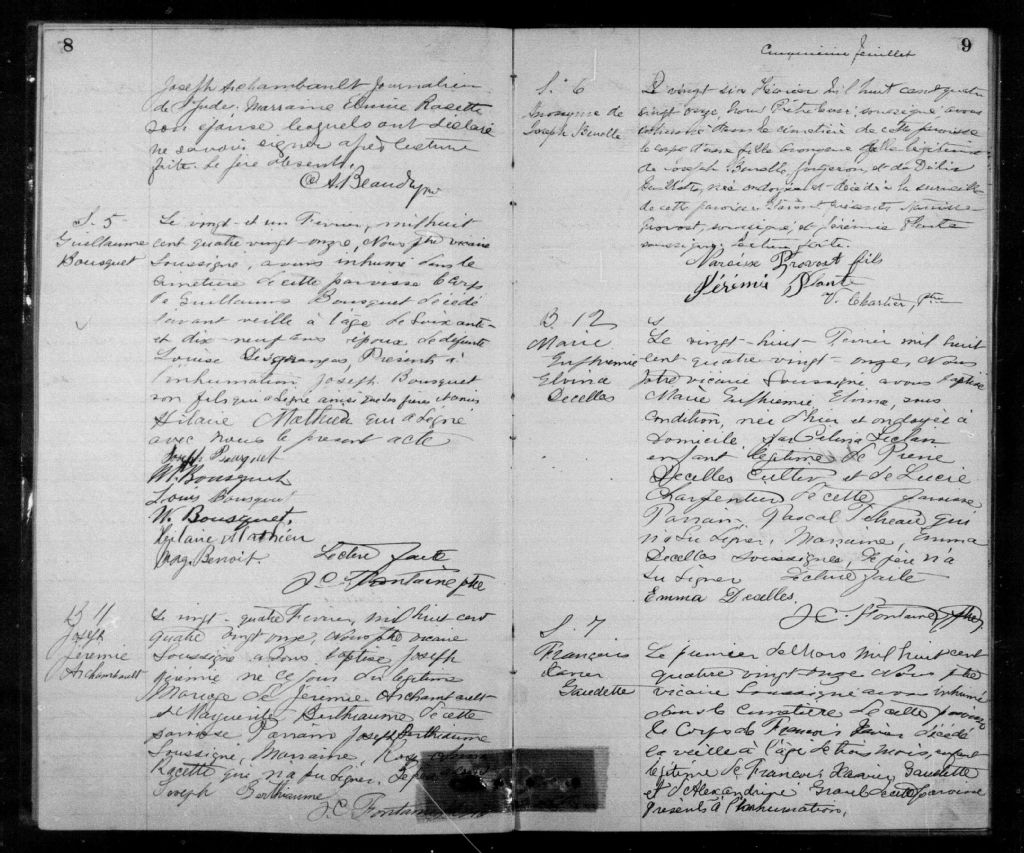 8
Joseph Archambault Journalier
de St Jude. Marraine Elmire Racette
son épouse lesquels ont déclaré
ne savoir signer après lecture
faite. Le père absent.
A. Beaudry ptre
S. 5
Guillaume
Bousquet
Le vingt et un Fevrier, mil huit
cent quatre vingt-onze, Nous ptre vicaire
soussigné, avons inhumé dans le
cimetière de cette paroisse le corps
de Guillaume Bousquet décédé
l'avant veille à l'âge de soixante-
et dix-neuf ans époux de défunte
Louise Desgranges, Présents à
l'inhumation Joseph Bousquet
son fils qui a signé ainsi que
Hilaire Mathieu qui a signé
avec nous le présent acte
Joseph Bousquet
M. Bousquet
Louis Bousquet
W. Bousquet.
Hilaire Mathieu
Benoit.
Lecture faite
J.C. Fontaine ptre
B 11
Joseph
Jérémie
Archambault
Le vingt-quatre Fevrier, mil huit cent
quatre vingt onze, Nous ptre vicaire
soussigné avons baptisé Joseph
Jérémie né ce jour du légitime
Mariage de Jérémie Archambault
et Marguerite Berthiaume de cette
paroisse Parrain Joseph Berthiaume
soussigné, Marraine,
Racette qui n'a su signer, Le père
Joseph Berthiaume
J.C. Fontaine
Cinquième feuillet
9
S. 6
Anonyme de
Joseph Benoite
Le vingt six Fevrier mil huit cent quatre
vingt onze, Nous Prêtre soussigné avons
inhumé dans le cimetière de cette paroisse
le corps d'une fille anonyme fille légitime
de Joseph forgeron, et de Délia
née ondoyée et décédée la surveille
de cette paroisse. Etaient présents Narcisse
Provost, soussigné, et Jérémie Plante
soussigné. Lecture faite.
Narcisse Provost fils
Jérémie Plante
V. Chartier, ptre
B. 12
Marie
Euphremie
Elvina
Decelles
Le vingt-huit Fevrier mil huit
cent quatre vingt-onze, Nous
ptre vicaire soussigné, avons baptisé
Marie Euphremie Elvina, sous
condition, née d'hier et ondoyée à
domicile par Celina
enfant légitime de Pierre
Decelles Cultiv. et de Lucie
Charpentier de cette paroisse
Parrain, Pascal qui
n'a su signer, Marraine, Emma
Decelles soussignée, Le père n'a
su signer Lecture faite
Emma Decelles.
J.C. Fontaine ptre
S. 7
François
Xavier
Gaudette
Le premier de Mars mil huit cent
quatre vingt onze Nous ptre
vicaire soussigné avons inhumé
dans le cimetière de cette paroisse
le corps de François Xavier décédé
la veille à l'âge de trois mois, enfant
légitime de François Xavier Gaudette
et d'Alexandrine Gravel de cette paroisse
Présents à l'inhumation,